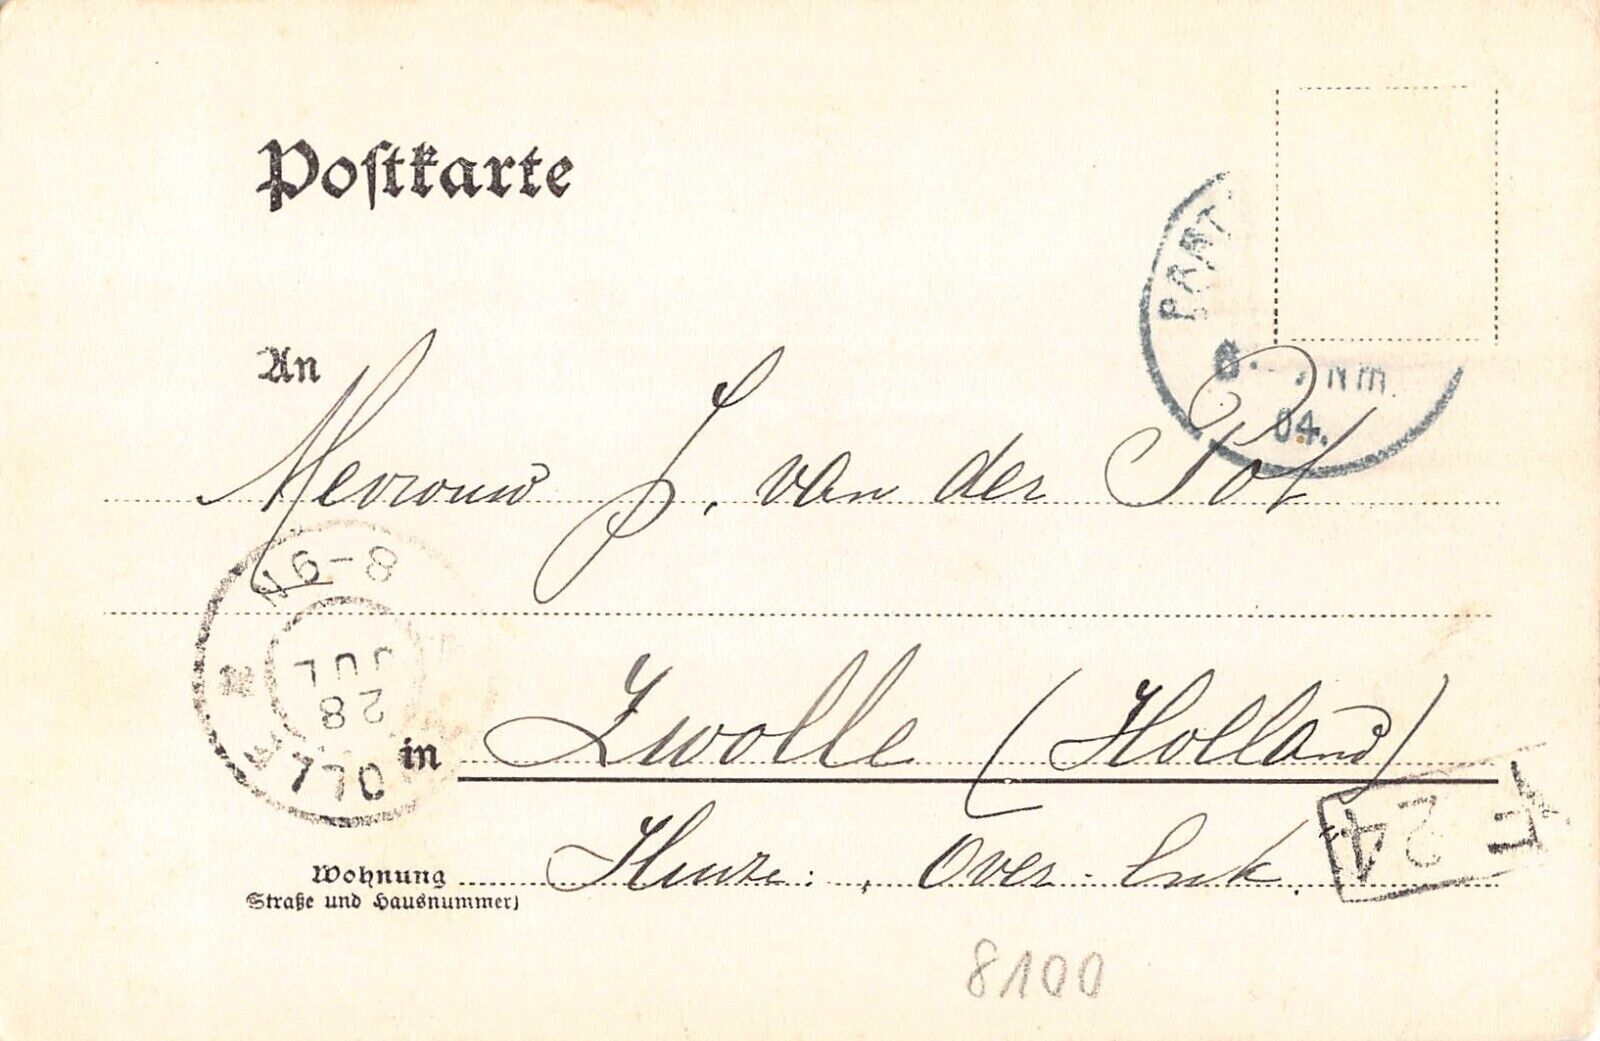 Postkarte
PRNT
6. Nm.
04.
An
Mevrouw S. van der Pot
8-9 N
JUL
28
OLLE
in Zwolle (Holland)
F 24
Wohnung Huize: Over-
(Straße und Hausnummer)
8100